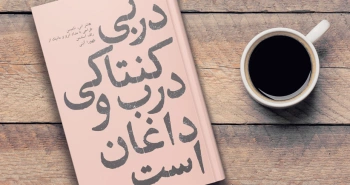 دربی
کنتاکی
درب و
داغان
است